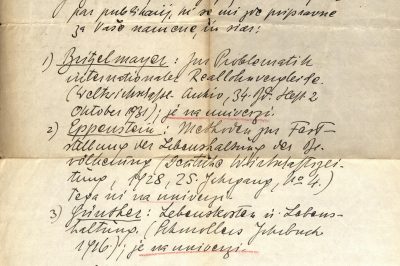 par publikacij, ki se mi zde pripravne
za Vaše namene, in sicer:
1) Britzelmayer: Zur Problematik
internationaler Reallohnvergleiche
(Weltwirtschaftl. Archiv, 34. Bd. Heft 2
Oktober 1931); je na univerzi.
2) Eppenstein: Methoden zur Fest-
stellung der Lebenshaltung der Be-
völkerung (Deutsche Wirtschaftszei-
tung, 1928, 25. Jahrgang, No 4.)
Tega ni na univerzi.
3) Günther: Lebenskosten u. Lebens-
haltung. (Schmollers Jahrbuch
1916); je na univerzi.